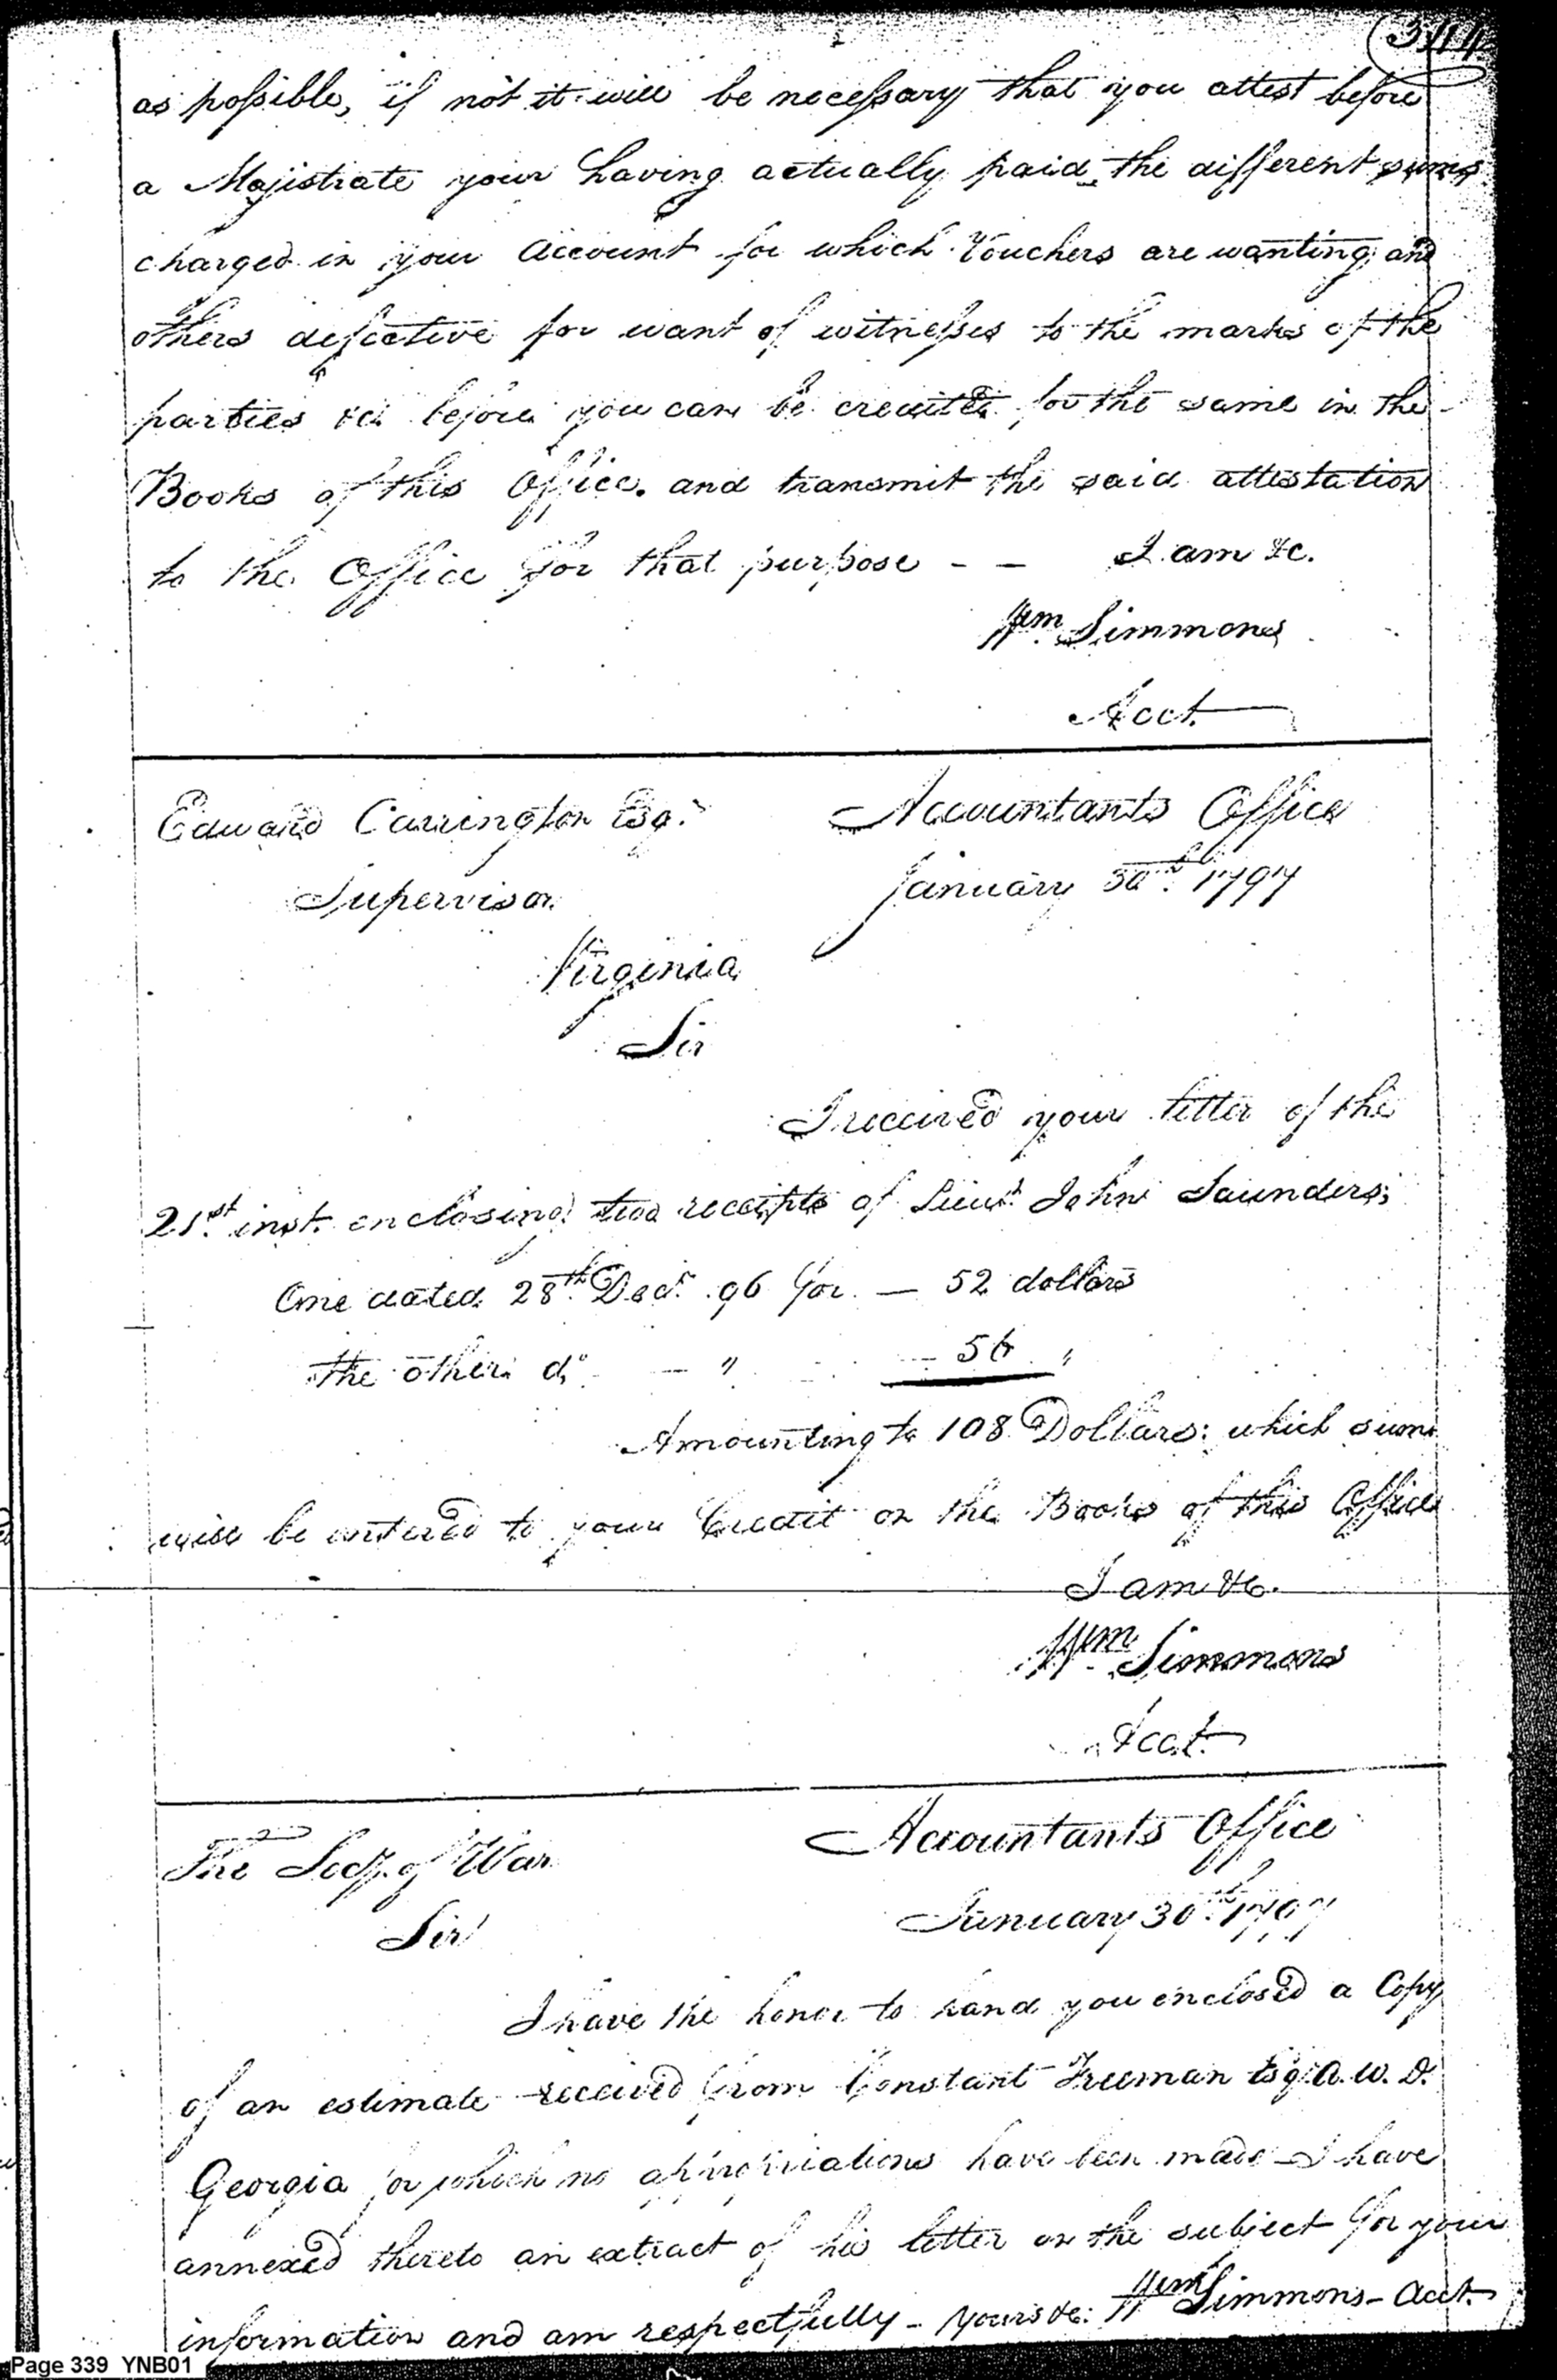 as possible, if not it will be necessary that you attest before
a Majistrate your having actually paid the different sums
charged in your Account for which Vouchers are wanting and
others defective for want of witnesses to the marks of the
parties &c before you can be credited for the same in the
Books of this Office. and transmit the said attestation
to the Office for that purpose - - I am &c.
Wm Simmons
Acct.
Edward Carrington Esqr. Accountants Office
Supervisor January 30th. 1797
Virginia
Sir
I received your letter of the
21st. inst. enclosing two receipts of Lieut. John Saunders;
One dated 28th. Decr. 96 for — 52 dollars
the other do. - " - 56 "
Amounting to 108 Dollars: which sum
will be entered to your Credit on the Books of this Office
I am &c.
Wm Simmons
Acct.
The Secy. of War Accountants Office
Sir January 30th. 1797
I have the honor to hand you enclosed a Copy
of an estimate received from Constant Freeman Esqr. A. W. D.
Georgia for which no appropriations have been made - I have
annexed thereto an extract of his letter on the subject for your
information and am respectfully - Yours &c. Wm Simmons - Acct.
Page 339 YNB01